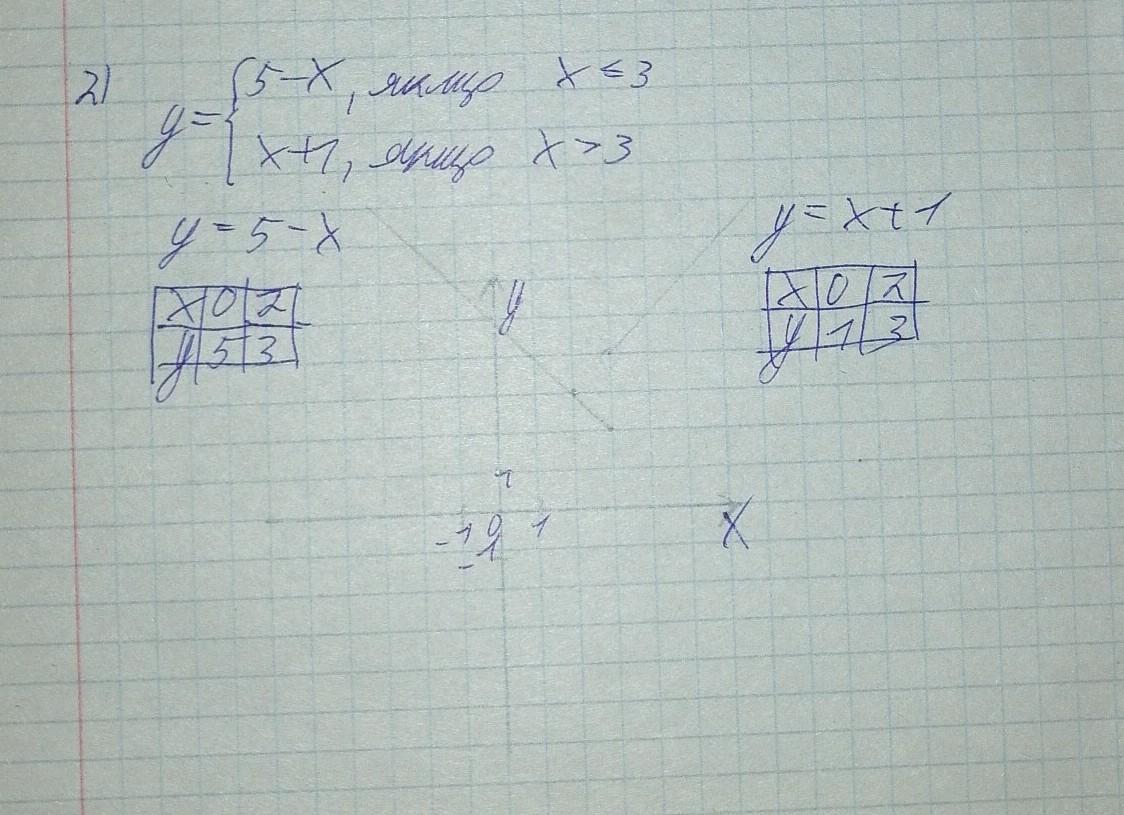 2)
y = { 5-x, якщо x ≤ 3
x+1, якщо x > 3
y = 5-x
y = x+1
x 0 2
y 5 3
x 0 2
y 1 3
y
1
-1 0 1 x
-1